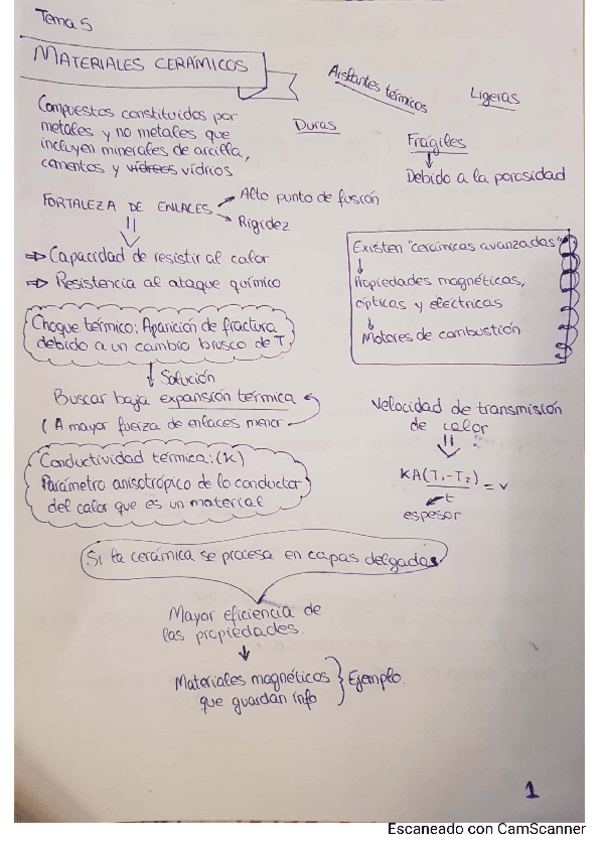 Tema 5
MATERIALES CERÁMICOS
Aislantes térmicos
Ligeras
Duras
Frágiles
Debido a la porosidad
Compuestos constituidos por
metales y no metales que
incluyen minerales de arcilla,
cementos y vidrees vidrios
FORTALEZA DE ENLACES
Alto punto de fusión
Rigidez
Capacidad de resistir al calor
Resistencia al ataque químico
Existen "cerámicas avanzadas"
Propiedades magnéticas,
ópticas y eléctricas
Motores de combustión
Choque térmico: Aparición de fractura
debido a un cambio brusco de T.
Solución
Buscar baja expansión térmica
(A mayor fuerza de enlaces menor
Velocidad de transmisión
de calor
KA(T₁-T₂) = v
t
espesor
Conductividad térmica: (K)
Parámetro anisotrópico de lo conductor
del calor que es un material
Si la cerámica se procesa en capas delgadas
Mayor eficiencia de
las propiedades.
Materiales magnéticos
que guardan info
Ejemplo.
1
Escaneado con CamScanner